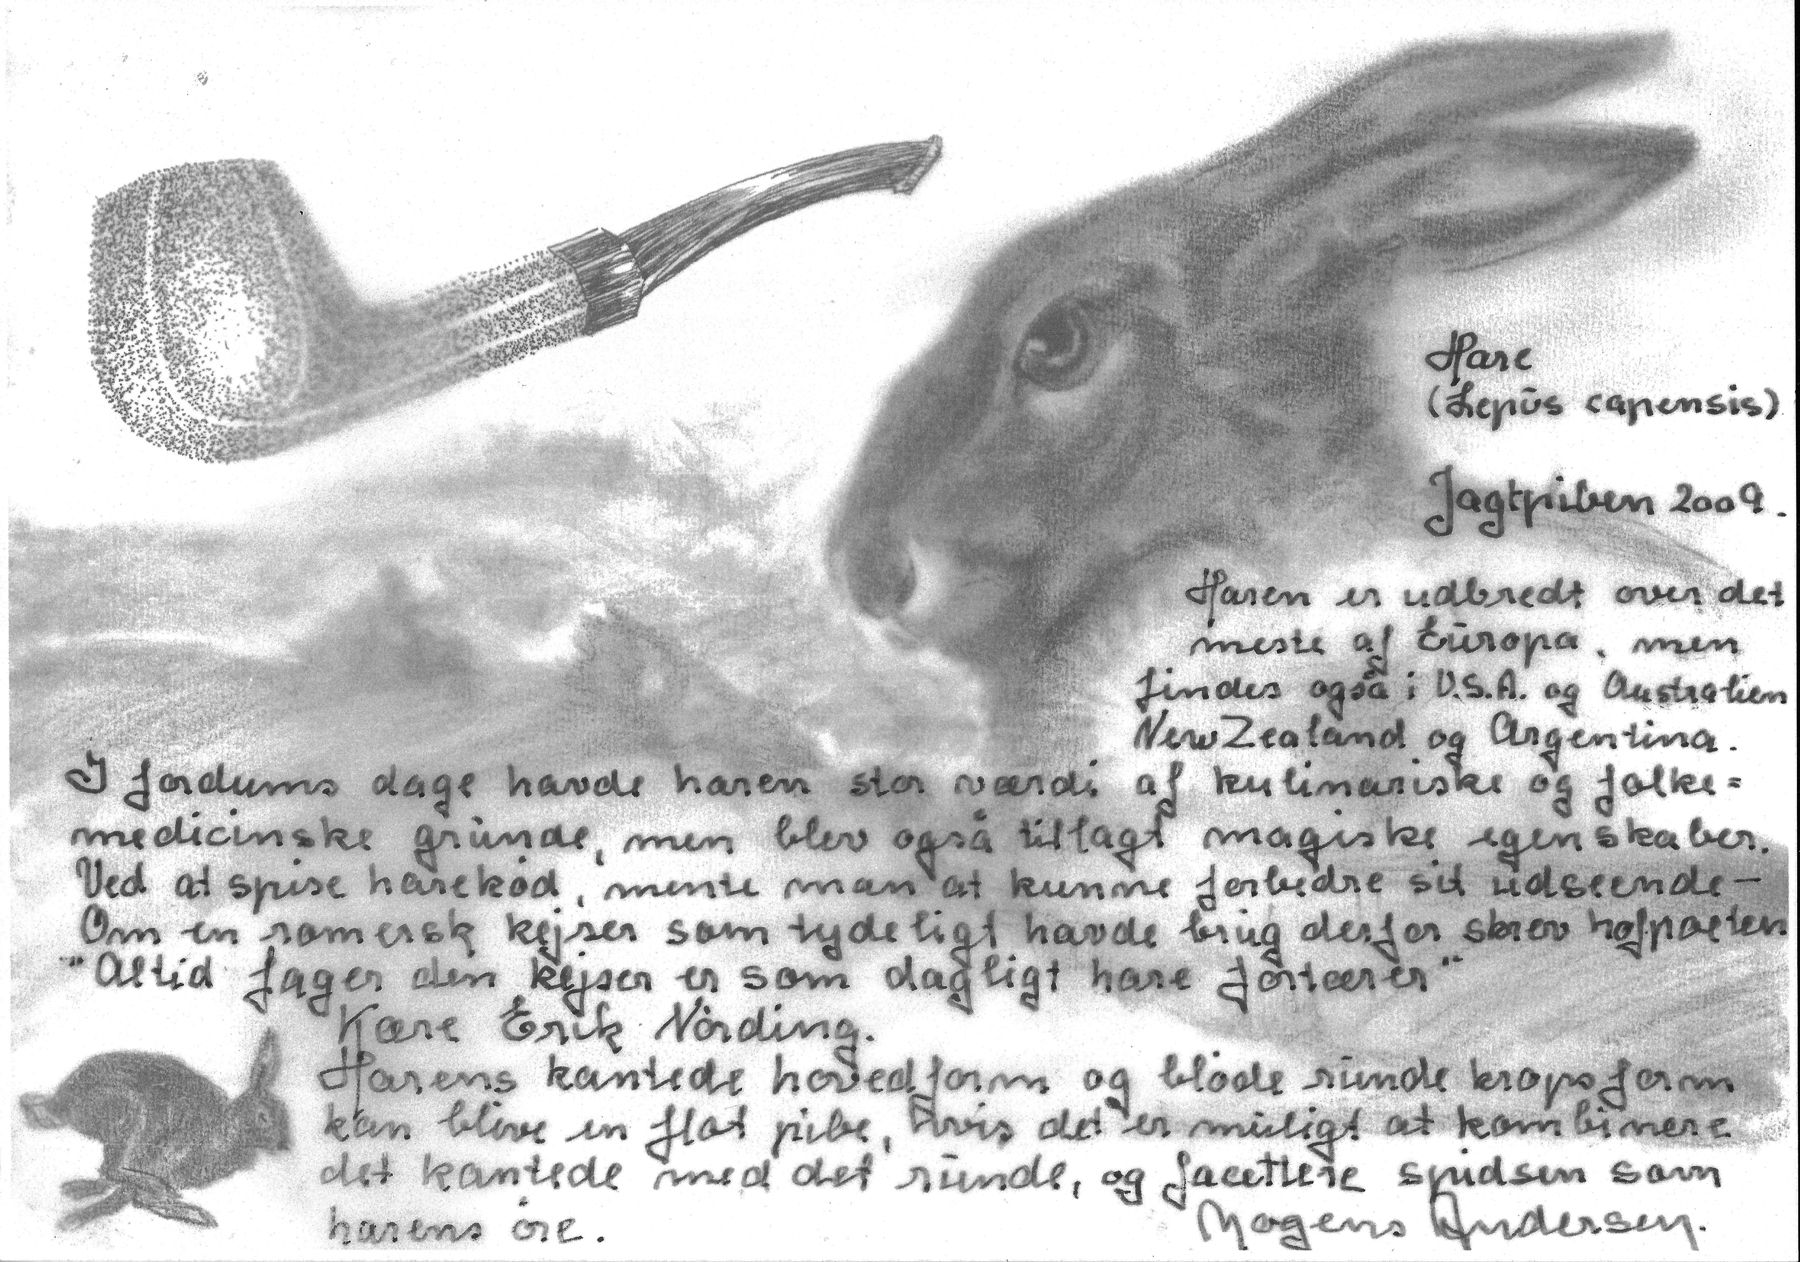 Hare
(Lepūs capensis)
Jagtpiben 2009.
Haren er udbredt over det
meste af Eūropa, men
findes også i U.S.A. og Australien
New Zealand og Argentina.
I fordums dage havde haren stor værdi af kulinariske og folke=
medicinske grūnde, men blev også tillagt magiske egenskaber.
Ved at spise harekød, mente man at kunne forbedre sit udseende—
Om en romersk kejser som tydeligt havde brūg derfor skrev hofpoeten
"Altid fager den kejser er som dagligt hare fortærer"
Kære Erik Nørding.
Harens kantede hovedform og bløde rūnde kropsform
kan blive en flot pibe, hvis det er mūligt at kombinere
det kantede med det rūnde, og facettere spidsen som
harens øre.
Mogens Andersen.